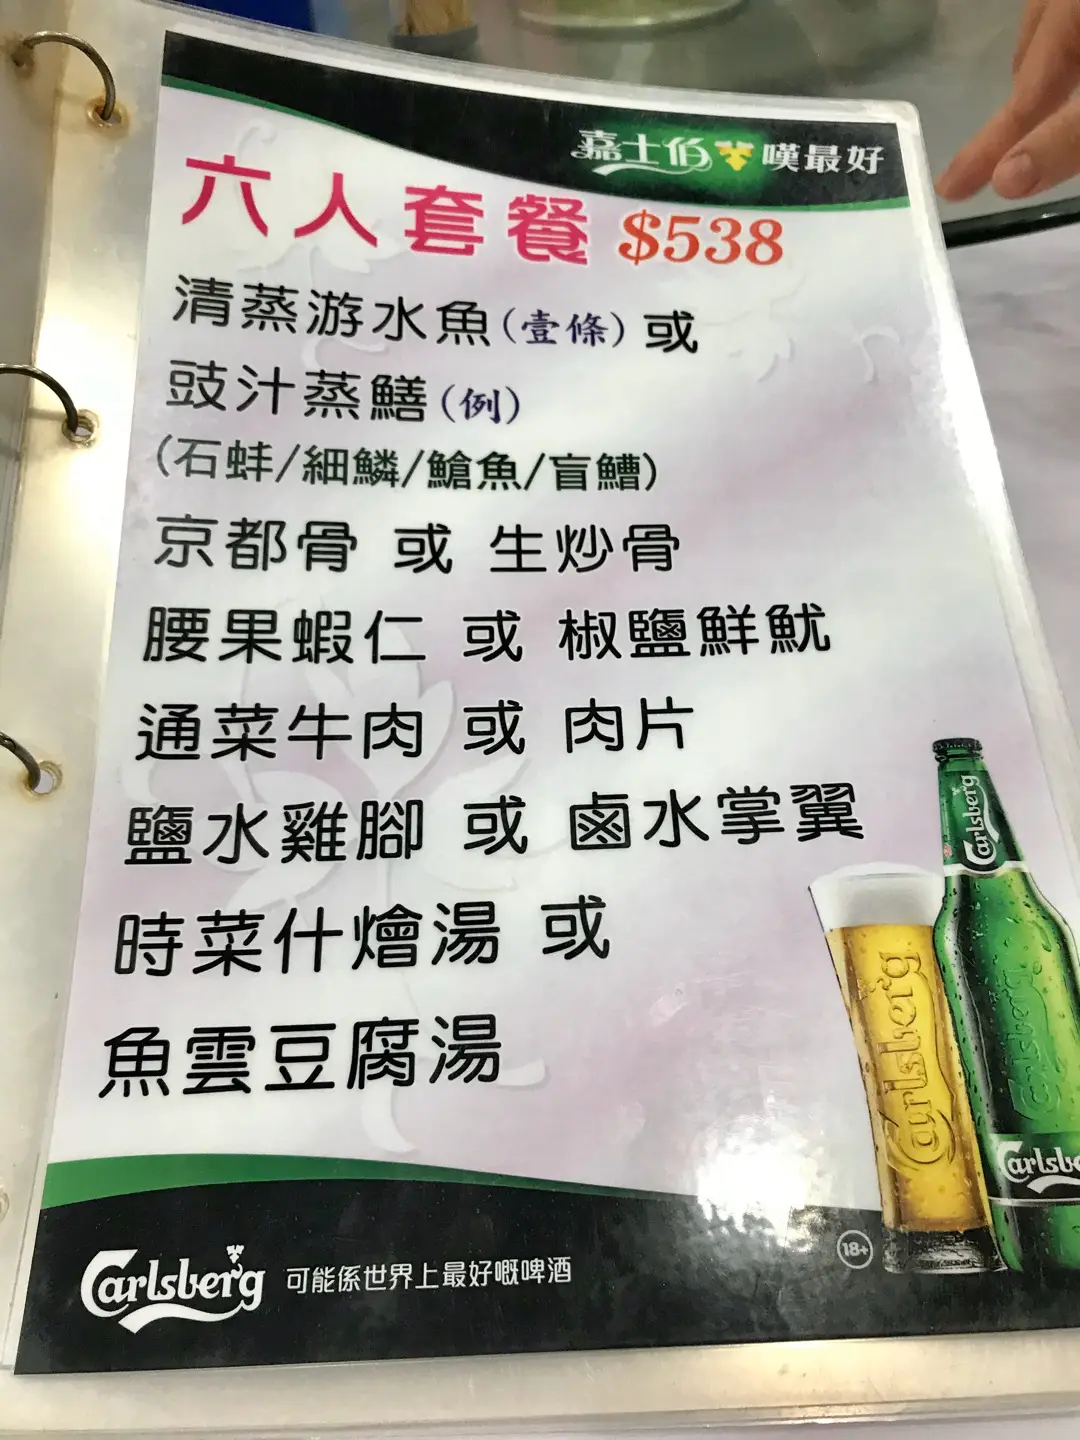 嘉士伯 嘆最好
六人套餐 $538
清蒸游水魚(壹條) 或
豉汁蒸鱔(例)
(石蚌/細鱗/鯧魚/盲鰽)
京都骨 或 生炒骨
腰果蝦仁 或 椒鹽鮮魷
通菜牛肉 或 肉片
鹽水雞腳 或 鹵水掌翼
時菜什燴湯 或
魚雲豆腐湯
Carlsberg
Carlsberg
Carlsberg
Carlsbe
18+
Carlsberg 可能係世界上最好嘅啤酒